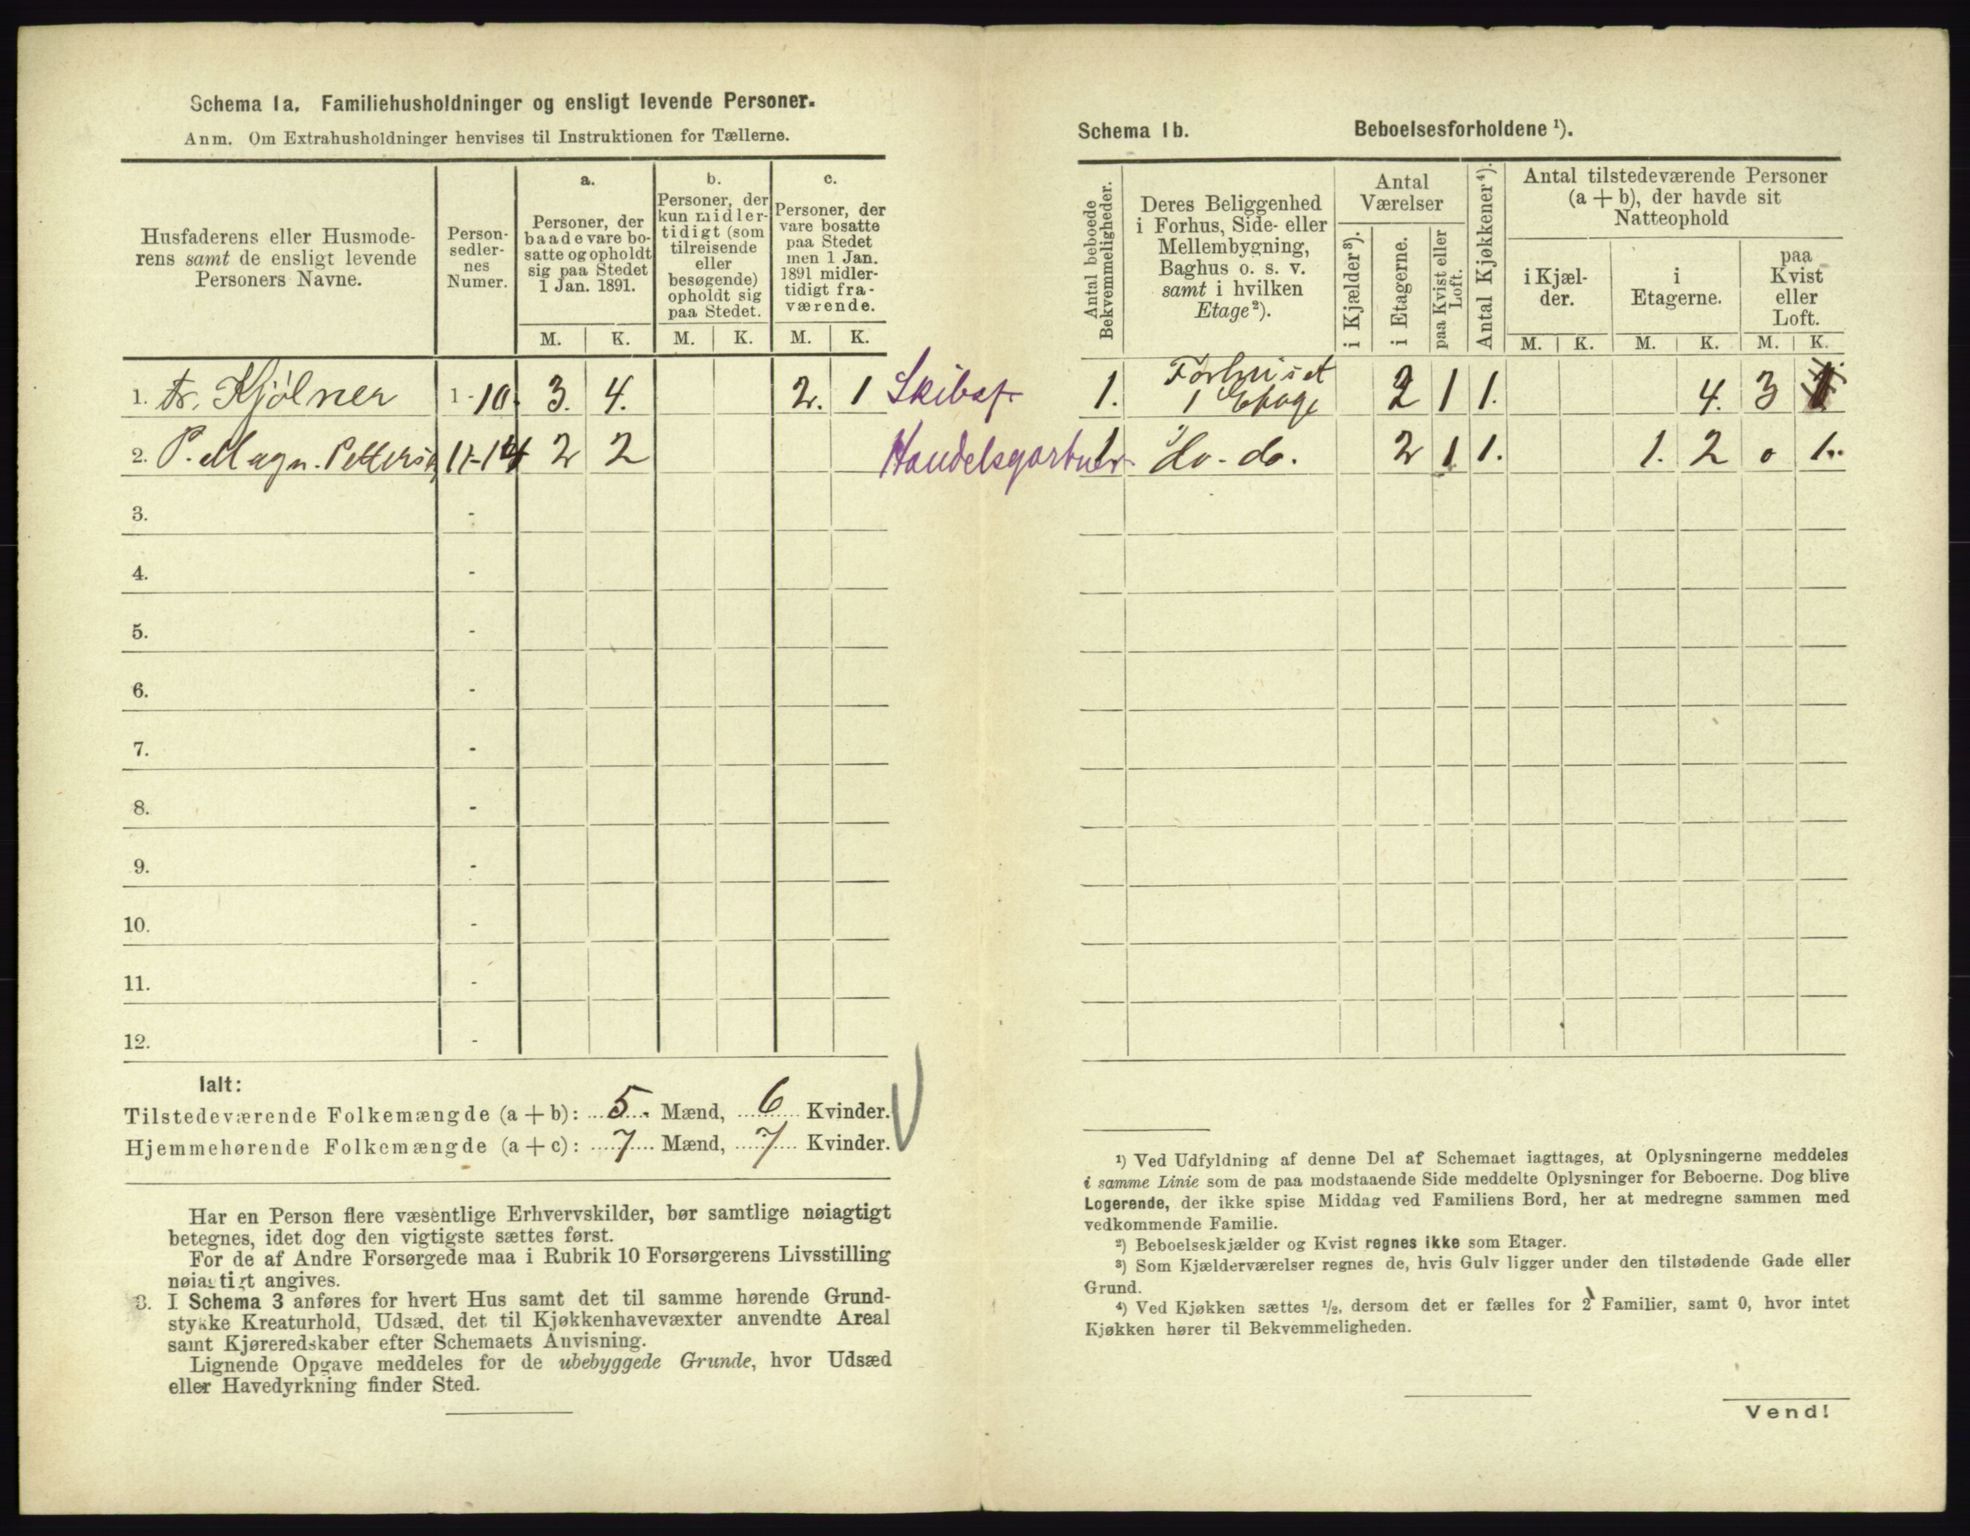 Schema 1a. Familiehusholdninger og ensligt levende Personer.
Anm. Om Extrahusholdninger henvises til Instruktionen for Tællerne.
Husfaderens eller Husmode-
rens samt de ensligt levende
Personers Navne.
Person-
sedler-
nes
Numer.
a.
Personer, der
baade vare bo-
satte og opholdt
sig paa Stedet
1 Jan. 1891.
b.
Personer, der
kun midler-
tidigt (som
tilreisende
eller
besøgende)
opholdt sig
paa Stedet.
c.
Personer, der
vare bosatte
paa Stedet
men 1 Jan.
1891 midler-
tidigt fra-
værende.
M. K. M. K. M. K.
1. Fr. Kjölner 1-10. 3. 4. 2. 1 Skibsf.
2. P. Magn. Petters 11-14 2 2 Handelsgartner
3. -
4. -
5. -
6. -
7. -
8. -
9. -
10. -
11. -
12. -
Ialt:
Tilstedeværende Folkemængde (a + b): 5. Mænd, 6 Kvinder.
Hjemmehørende Folkemængde (a + c): 7 Mænd, 7 Kvinder.
Har en Person flere væsentlige Erhvervskilder, bør samtlige nøiagtigt
betegnes, idet dog den vigtigste sættes først.
For de af Andre Forsørgede maa i Rubrik 10 Forsørgerens Livsstilling
nøiagtigt angives.
3. I Schema 3 anføres for hvert Hus samt det til samme hørende Grund-
stykke Kreaturhold, Udsæd, det til Kjøkkenhavevæxter anvendte Areal
samt Kjøreredskaber efter Schemaets Anvisning.
Lignende Opgave meddeles for de ubebyggede Grunde, hvor Udsæd
eller Havedyrkning finder Sted.
Schema 1b. Beboelsesforholdene ¹).
Antal beboede
Bekvemmeligheder.
Deres Beliggenhed
i Forhus, Side- eller
Mellembygning,
Baghus o. s. v.
samt i hvilken
Etage ²).
Antal
Værelser
i Kjælder ³).
i Etagerne.
paa Kvist eller
Loft.
Antal Kjøkkener ⁴).
Antal tilstedeværende Personer
(a + b), der havde sit
Natteophold
i Kjæl-
der.
i
Etagerne.
paa
Kvist
eller
Loft.
M. K. M. K. M. K.
1. Forhuset
1 Etage 2 1 1. 4. 3
1. do. do. 2 1 1. 1. 2 0 1.
¹) Ved Udfyldning af denne Del af Schemaet iagttages, at Oplysningerne meddeles
i samme Linie som de paa modstaaende Side meddelte Oplysninger for Beboerne. Dog blive
Logerende, der ikke spise Middag ved Familiens Bord, her at medregne sammen med
vedkommende Familie.
²) Beboelseskjælder og Kvist regnes ikke som Etager.
³) Som Kjælderværelser regnes de, hvis Gulv ligger under den tilstødende Gade eller
Grund.
⁴) Ved Kjøkken sættes ½, dersom det er fælles for 2 Familier, samt 0, hvor intet
Kjøkken hører til Bekvemmeligheden.
Vend!